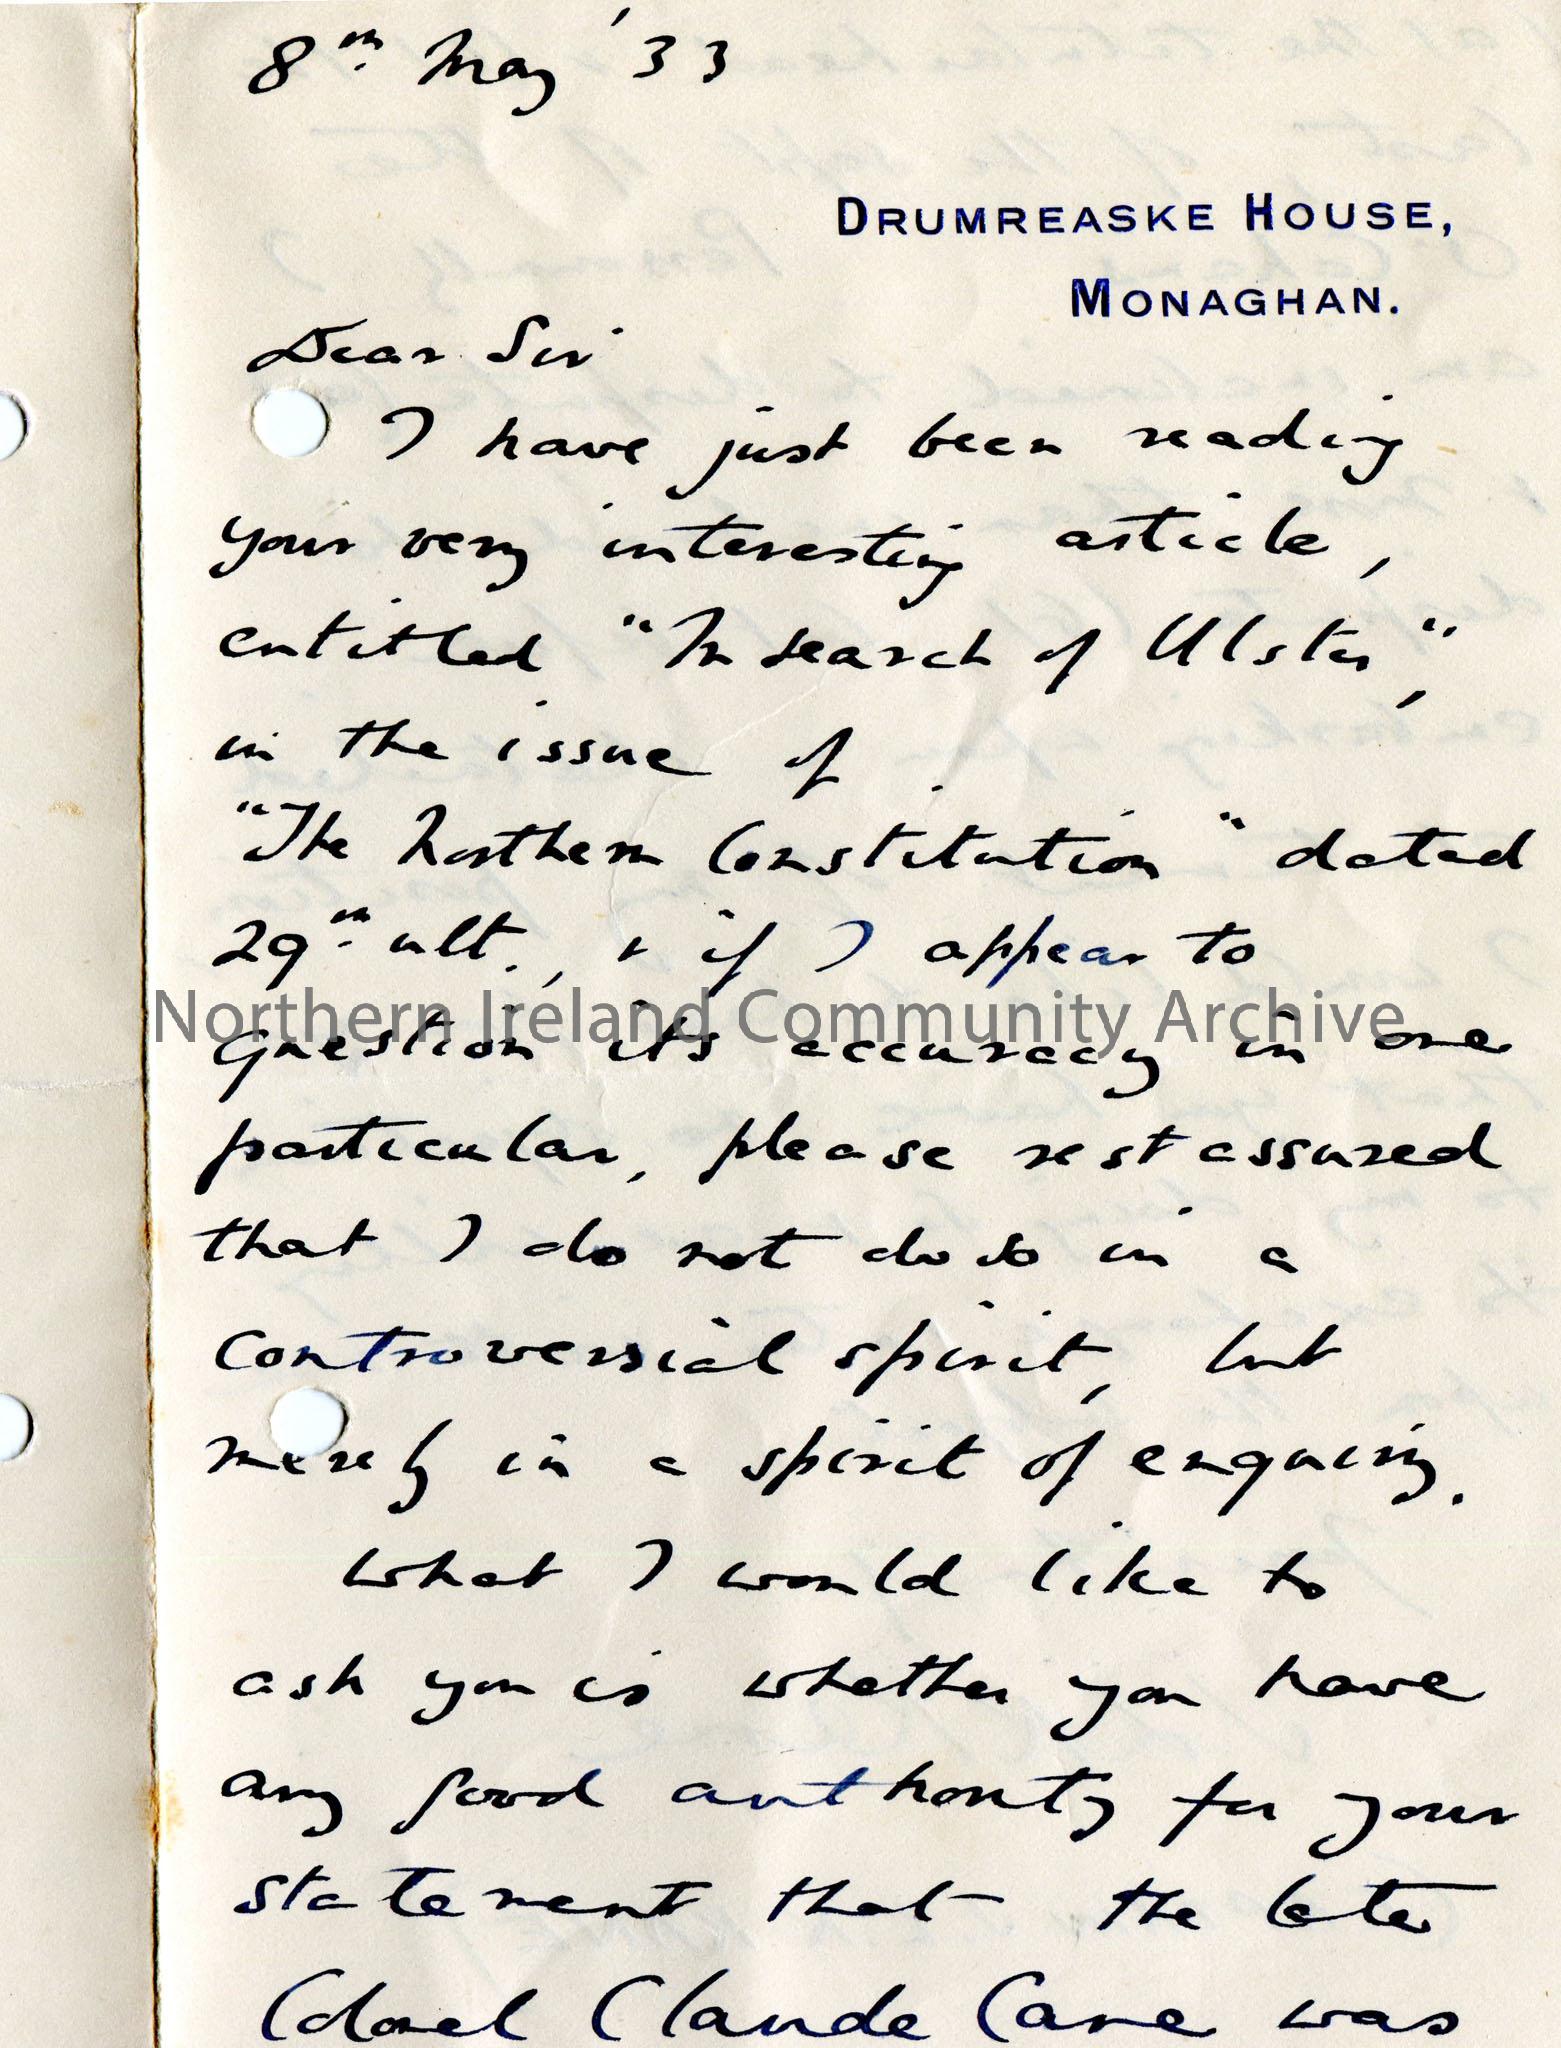 8th May '33
DRUMREASKE HOUSE,
MONAGHAN.
Dear Sir
I have just been reading
your very interesting article,
entitled "In search of Ulster,"
in the issue of
"The Northern Constitution" dated
29th ult., & if I appear to
Northern Ireland Community Archive
question its accuracy in one
particular, please rest assured
that I do not do so in a
controversial spirit, but
merely in a spirit of enquiry.
What I would like to
ask you is whether you have
any good authority for your
statement that the late
Colonel Claude Cane was